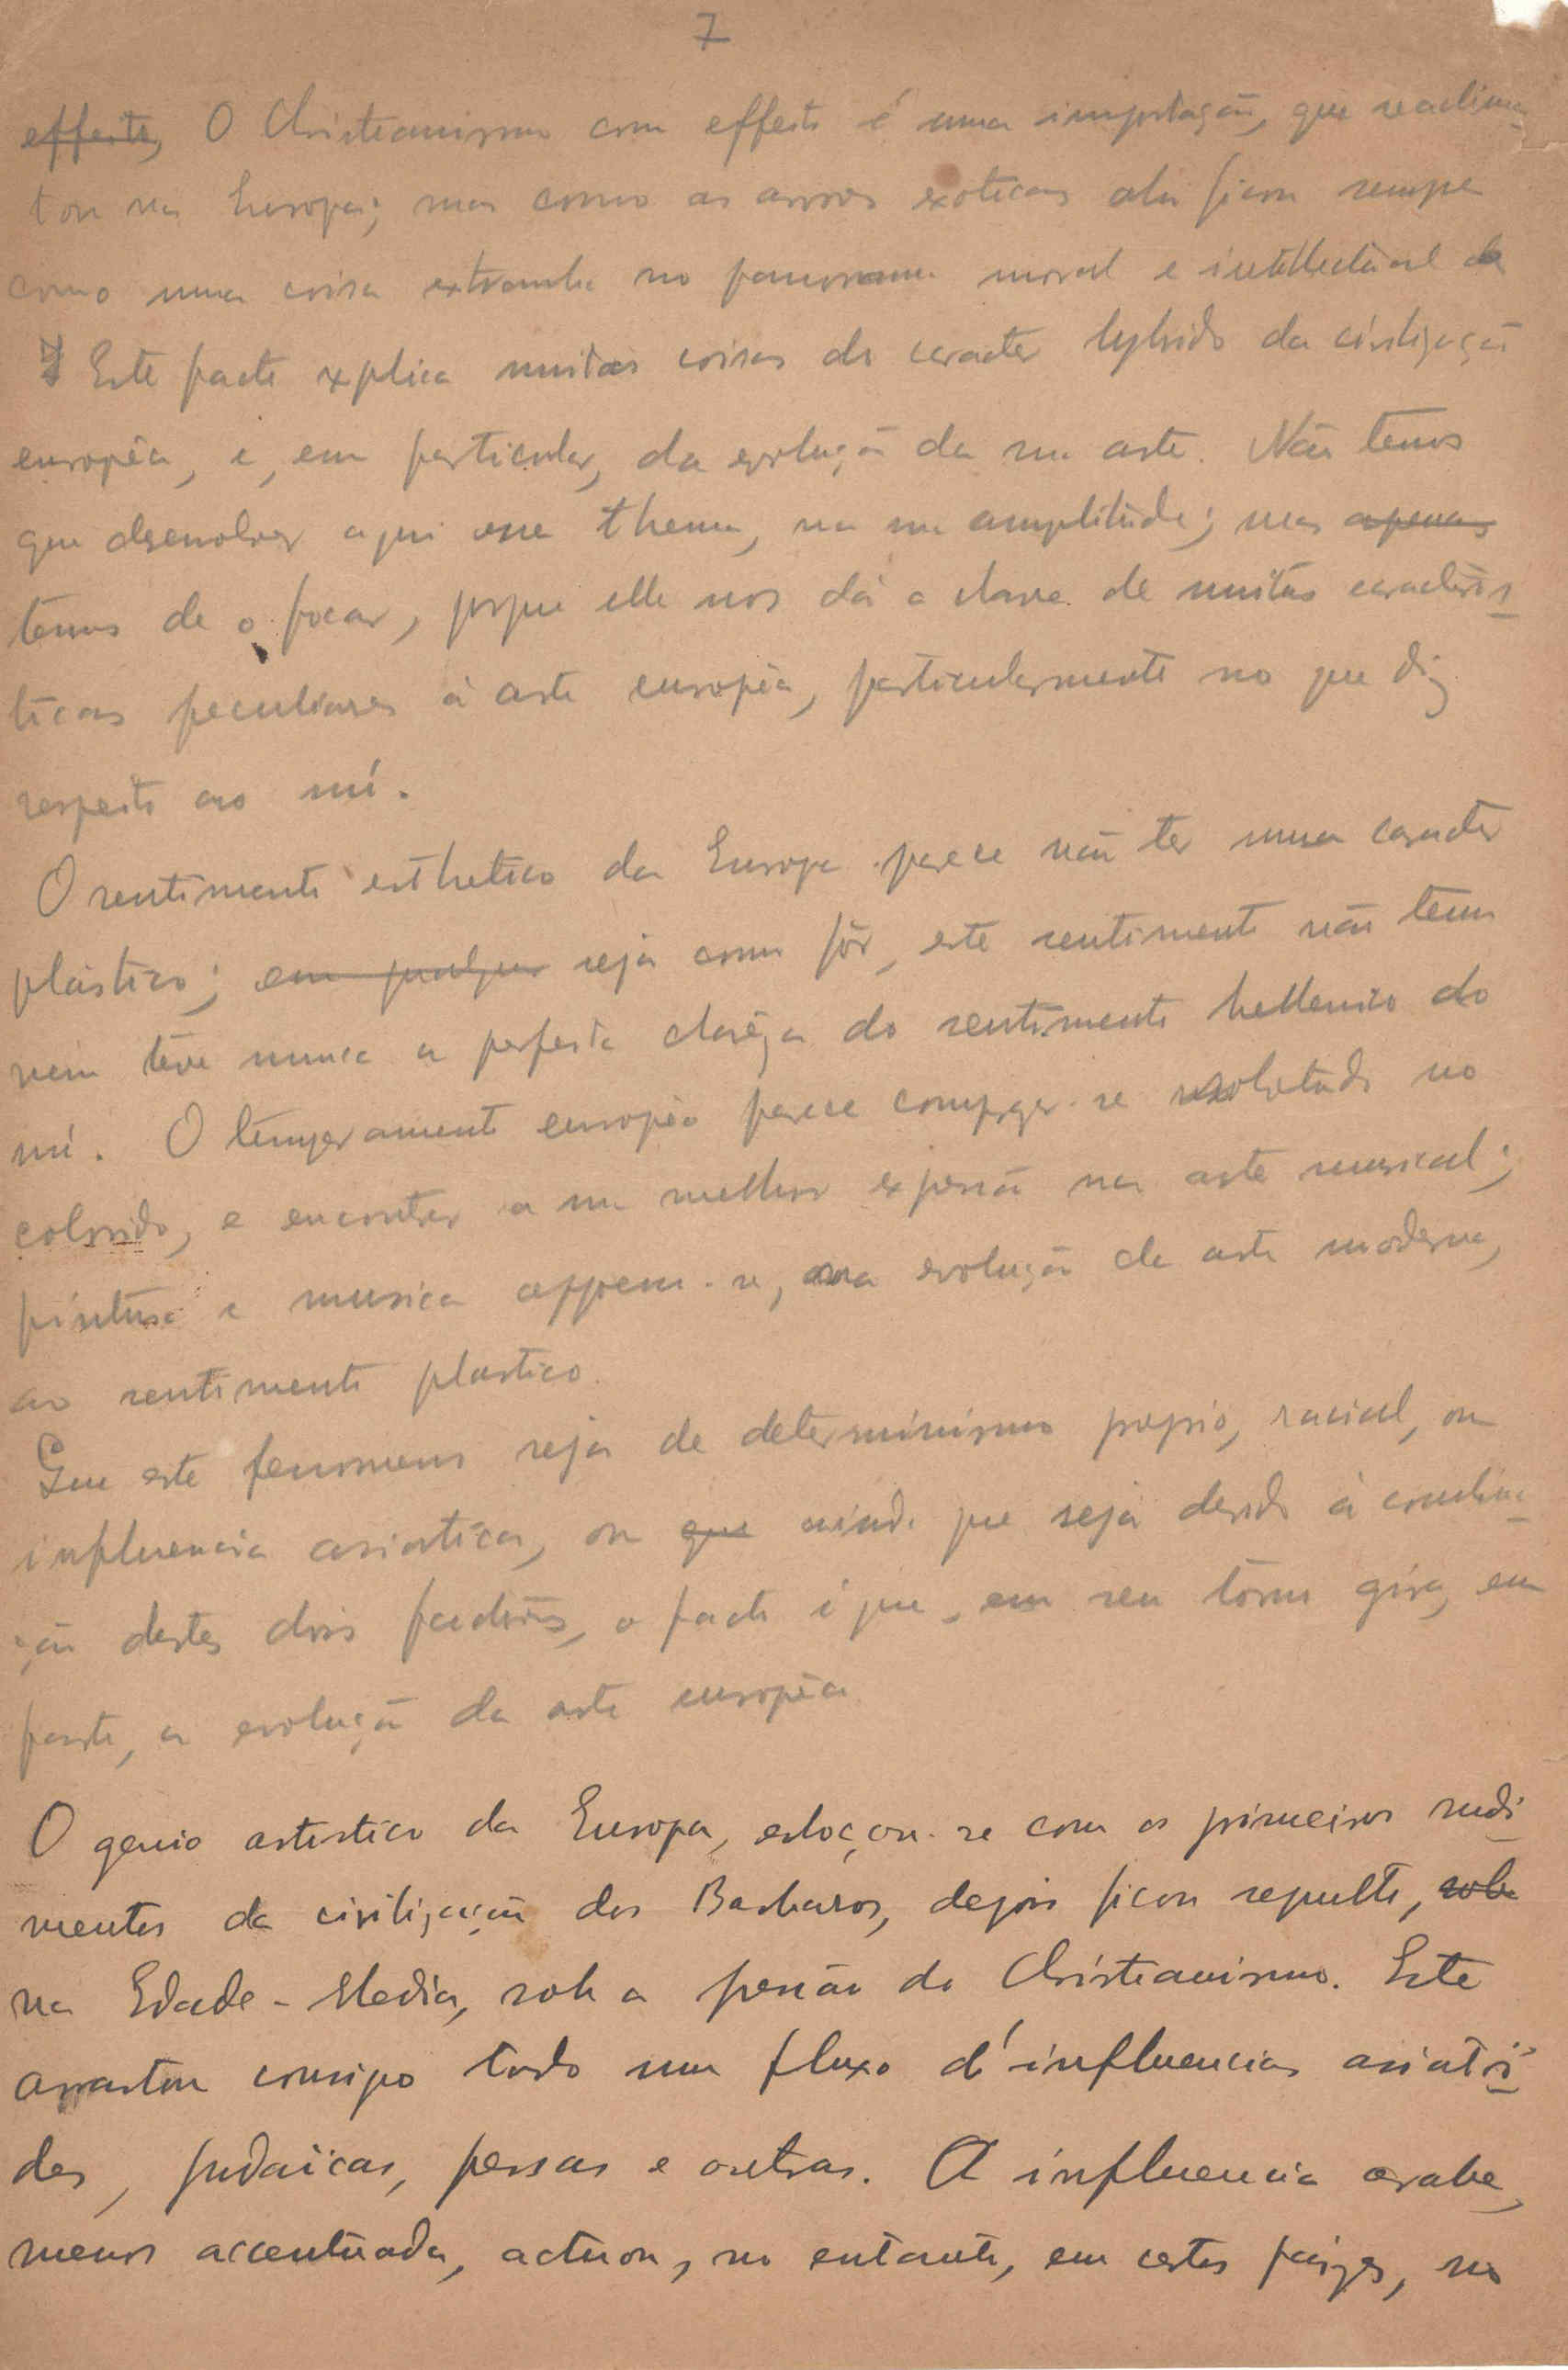 7
effeito, O Christianismo com effeito é uma importação, que se aclima-
tou na Europa; mas como as arvores exoticas ahi ficou sempre
como uma coisa extranha no panorama moral e intellectual da
Este facto explica muitas coisas do caracter hybrido da civilização
européa, e, em particular, da evolução da sua arte. Não temos
que desenvolver aqui esse thema, na sua amplitude; mas apenas
temos de o focar, porque elle nos dá a chave de muitas caracterís-
ticas peculiares á arte européa, particularmente no que diz
respeito ao nú.
O sentimento esthetico da Europa parece não ter um caracter
plástico; em qualquer seja como fôr, este sentimento não tem
nem têve nunca a perfeita clarêza do sentimento hellenico do
nú. O temperamento européo parece comprazer-se sobretudo no
colorido, e encontrar a sua melhor expressão na arte musical;
pintura e musica oppoem-se, na evolução da arte moderna,
ao sentimento plastico.
Que este fenomeno seja de determinismo proprio, racial, ou
influencia asiatica, ou que ainda que seja devido á combina-
ção destes dois factores, o facto é que, em seu tôrno gira, em
parte, a evolução da arte européa
O genio artistico da Europa, esboçou-se com os primeiros rudi-
mentos da civilização dos Barbaros, depois ficou sepulto, sob
na Edade-Media, sob a pressão do Christianismo. Este
arrastou comsigo todo um fluxo d'influencias asiati-
das, judaicas, persas e outras. A influencia arabe,
menos accentuada, actuou, no entanto, em certos paizes, no